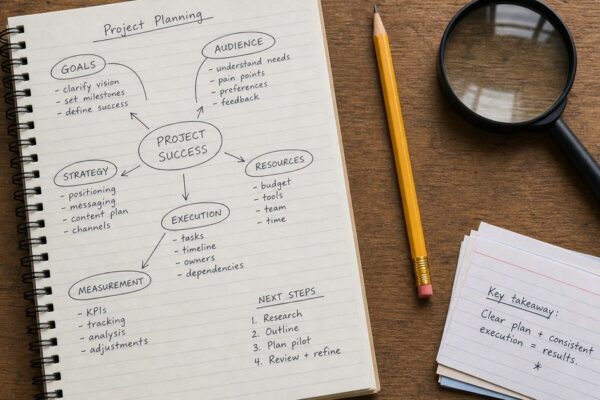 Project Planning
GOALS
- clarify vision
- set milestones
- define success
AUDIENCE
- understand needs
- pain points
- preferences
- feedback
PROJECT
SUCCESS
STRATEGY
- positioning
- messaging
- content plan
- channels
RESOURCES
- budget
- tools
- team
- time
EXECUTION
- tasks
- timeline
- owners
- dependencies
MEASUREMENT
- KPIs
- tracking
- analysis
- adjustments
NEXT STEPS
1. Research
2. Outline
3. Plan pilot
4. Review + refine
Key takeaway:
Clear plan + consistent
execution = results.
*